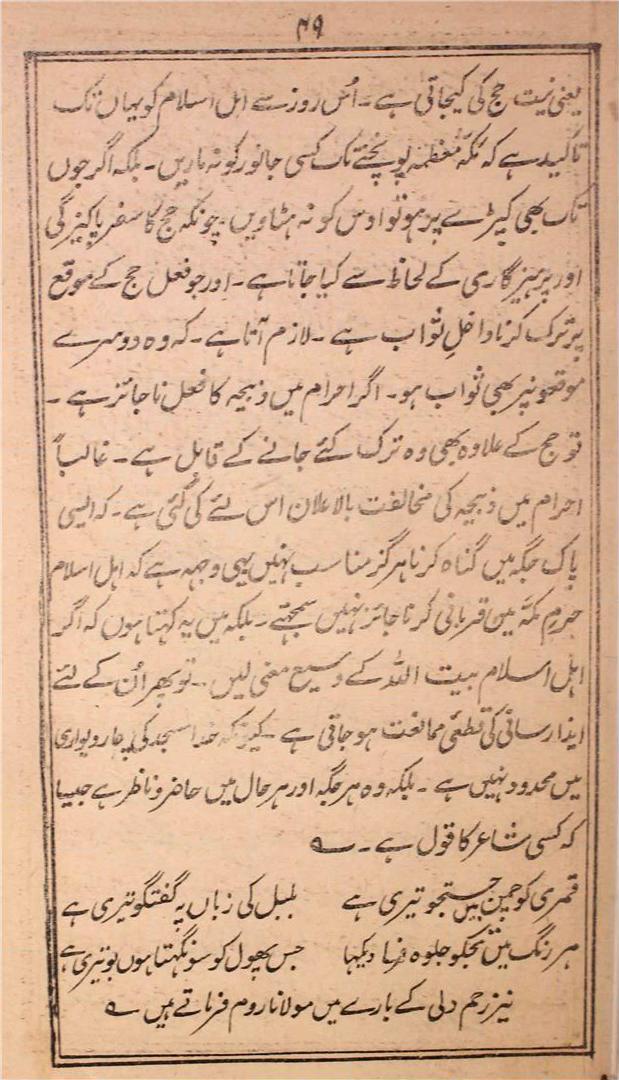 ۴۹
یعنی نیت حج کی کیجاتی ہے۔ اُس روز سے اہل اسلام کو یہاں تک
تاکید ہے کہ مکہ معظمہ پہونچنے تک کسی جانور کو نہ ماریں۔ بلکہ اگر جوں
تک بھی کپڑے پر ہو تو اوس کو نہ ہٹاویں۔ چونکہ حج کا سفر پاکیزگی
اور پرہیزگاری کے لحاظ سے کیا جاتا ہے۔ اور جو فعل حج کے موقع
پر ترک کرنا داخلِ ثواب ہے۔ لازم آتا ہے۔ کہ وہ دوسرے
موقعونپر بھی ثواب ہو۔ اگر احرام میں ذبیحہ کا فعل ناجائز ہے۔
تو حج کے علاوہ بھی وہ ترک کئے جانے کے قابل ہے۔ غالباً
احرام میں ذبیحہ کی مخالفت بالاعلان اس لئے کی گئی ہے۔ کہ ایسی
پاک جگہ میں گناہ کرنا ہرگز مناسب نہیں یہی وجہہ ہے کہ اہل اسلام
حرمِ مکہ میں قربانی کرنا جائز نہیں سمجھتے۔ بلکہ میں یہ کہتا ہوں کہ اگر
اہل اسلام بیت اللہ کے وسیع معنی لیں۔ تو پھر اُن کے لئے
ایذا رسانی کی قطعی ممانعت ہو جاتی ہے۔ کیونکہ خدا مسجد کی چار دیواری
میں محدود نہیں ہے۔ بلکہ وہ ہر جگہ اور ہر حال میں حاضر و ناظر ہے جیسا
کہ کسی شاعر کا قول ہے۔ ؎
قمری کو چمن میں جستجو تیری ہے بلبل کی زباں پہ گفتگو تیری ہے
ہر رنگ میں تجکو جلوہ فرما دیکھا جس پھول کو سونگھتا ہوں بو تیری ہے
نیز رحم دلی کے بارے میں مولانا روم فرماتے ہیں ؎